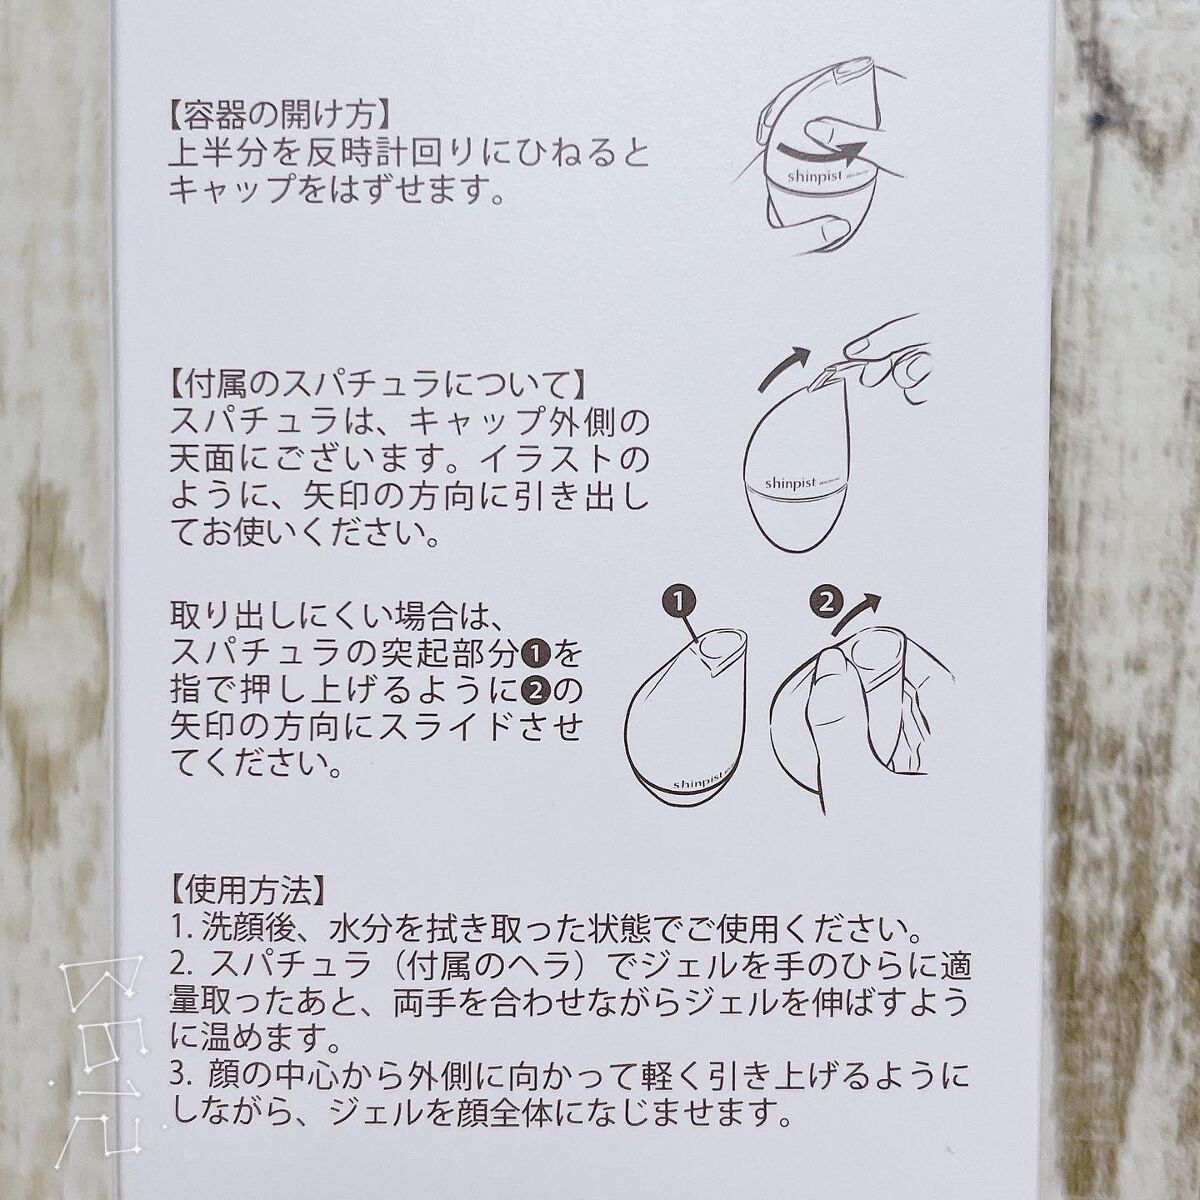 【容器の開け方】
上半分を反時計回りにひねると
キャップをはずせます。
shinpist
【付属のスパチュラについて】
スパチュラは、キャップ外側の
天面にございます。イラストの
ように、矢印の方向に引き出し
てお使いください。
shinpist
取り出しにくい場合は、
スパチュラの突起部分❶を
指で押し上げるように❷の
矢印の方向にスライドさせ
てください。
❶
❷
shinpist
【使用方法】
1. 洗顔後、水分を拭き取った状態でご使用ください。
2. スパチュラ（付属のヘラ）でジェルを手のひらに適
量取ったあと、両手を合わせながらジェルを伸ばすよう
に温めます。
3. 顔の中心から外側に向かって軽く引き上げるように
しながら、ジェルを顔全体になじませます。